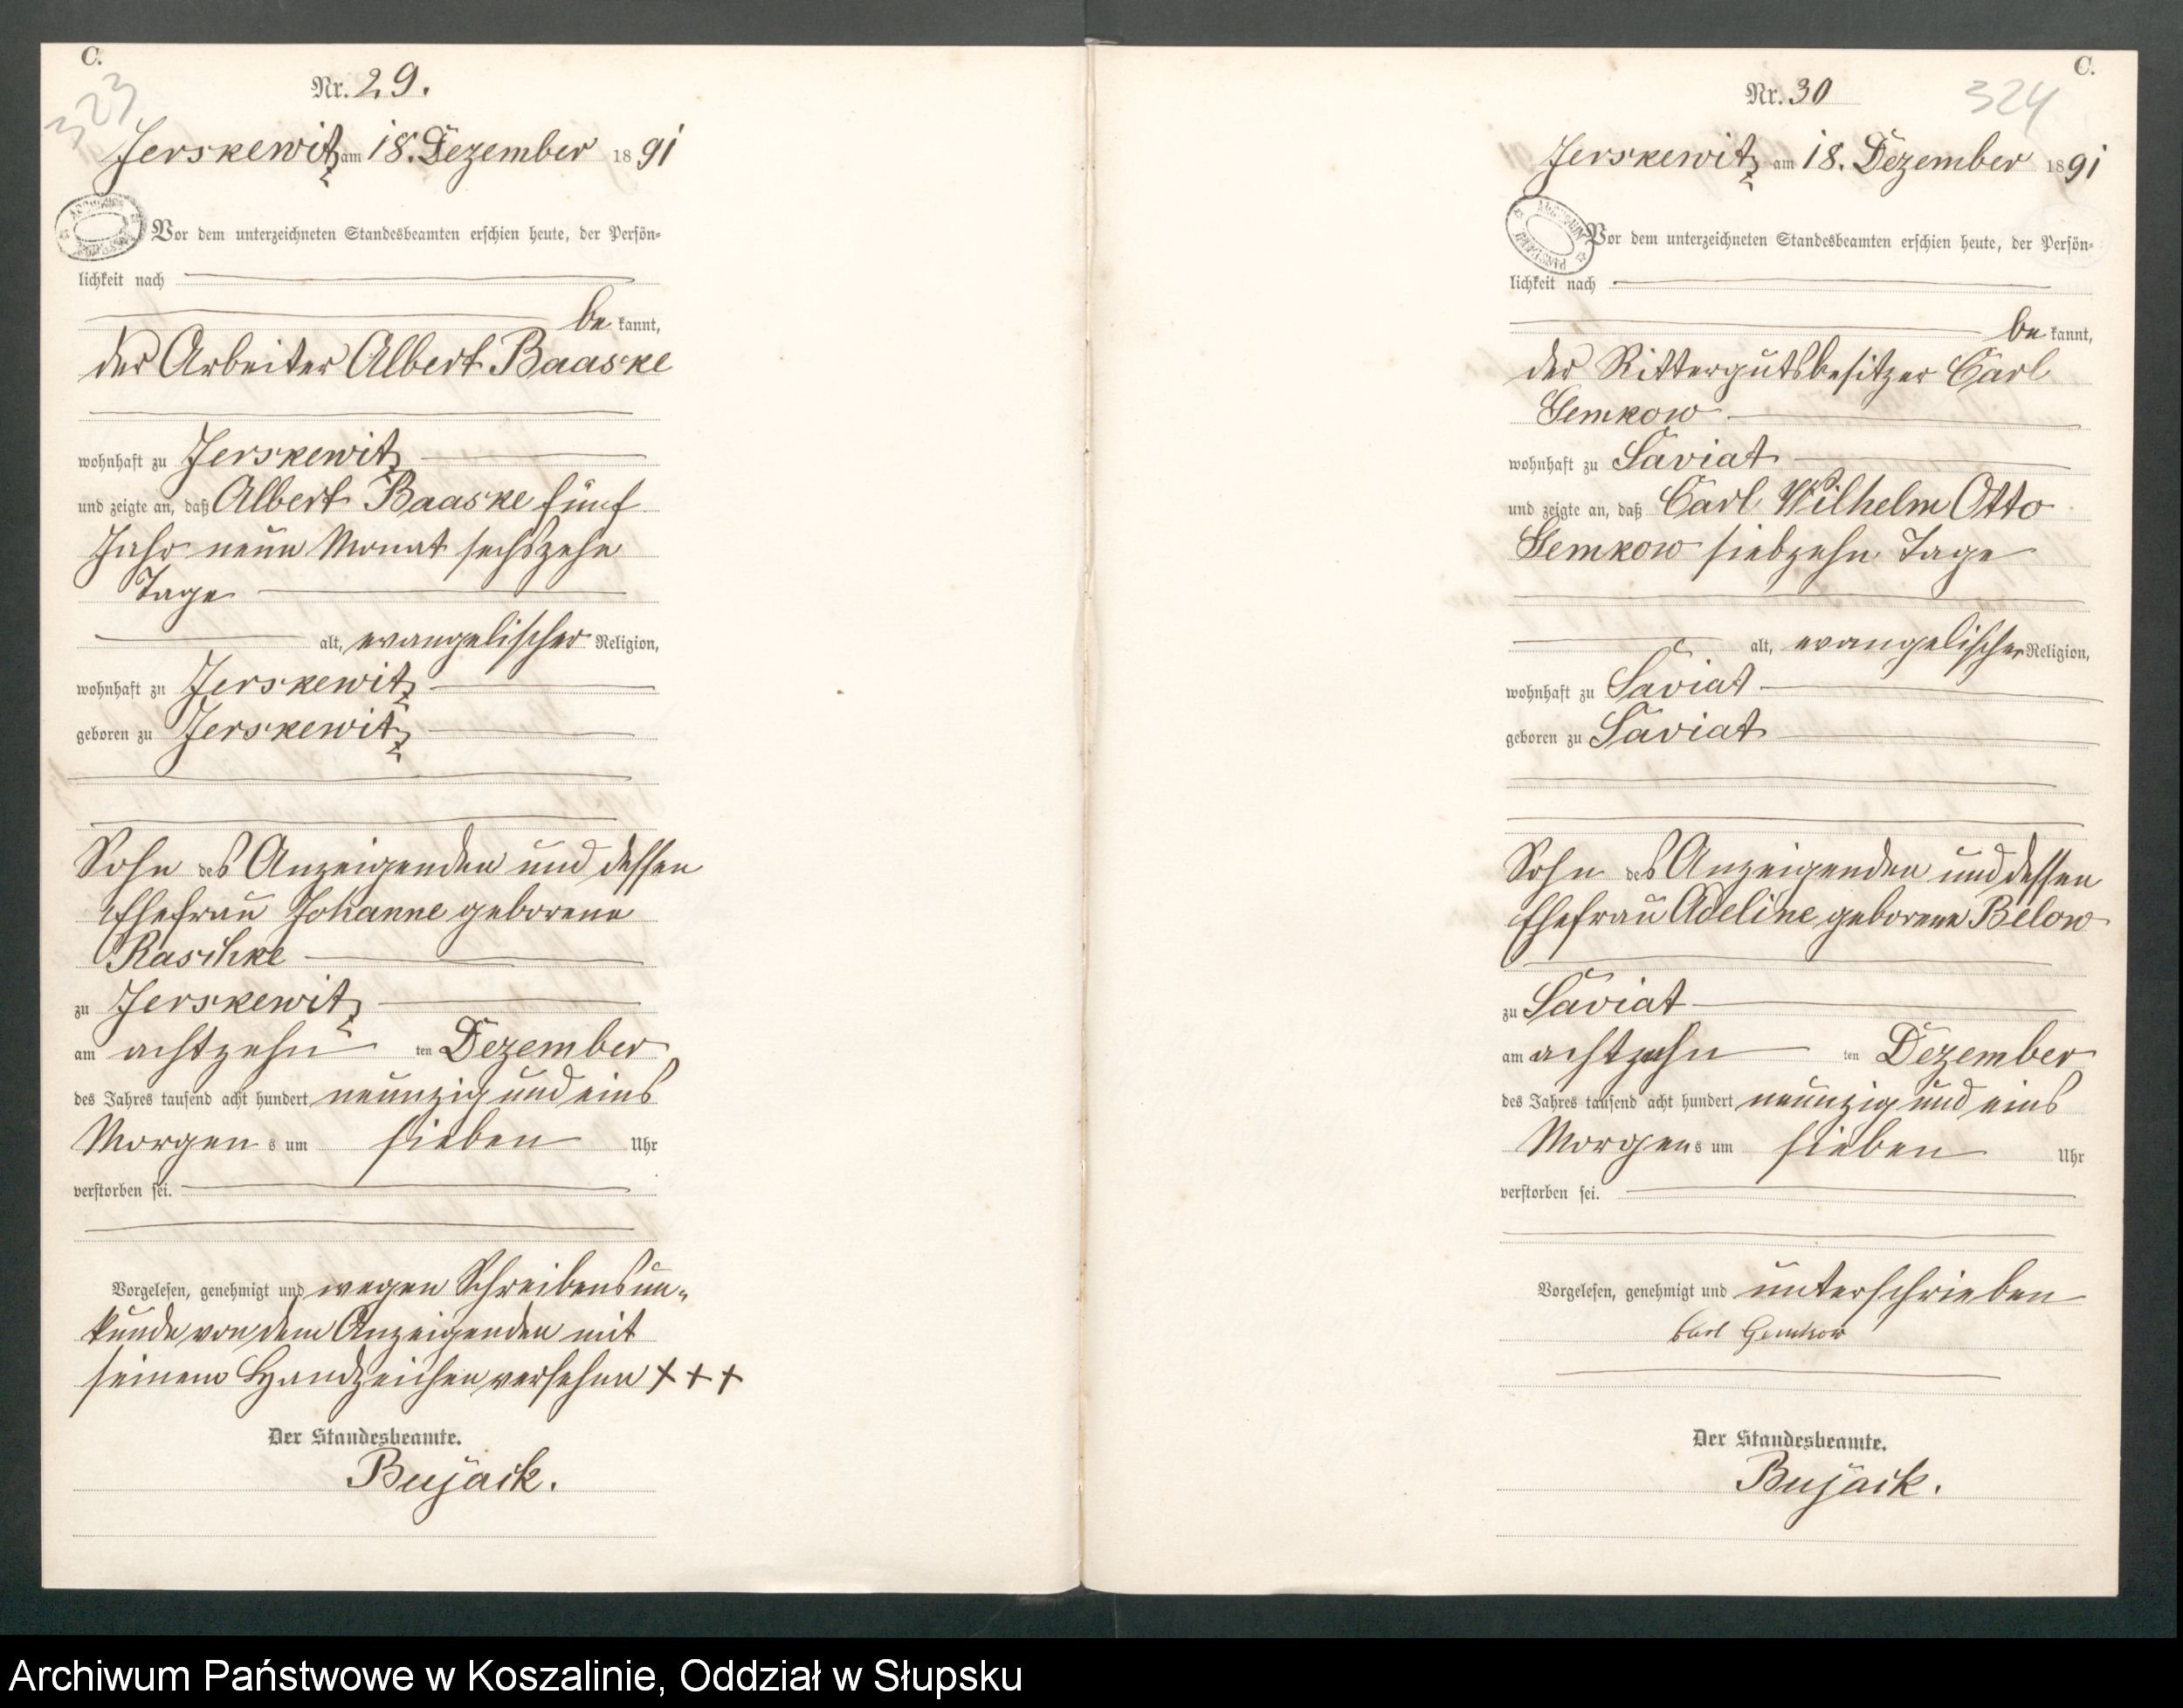 C.
323
Nr. 29.
Jerskewitz am 18. Dezember 1891
Vor dem unterzeichneten Standesbeamten erschien heute, der Persön-
lichkeit nach
be kannt,
der Arbeiter Albert Baaske
wohnhaft zu Jerskewitz
und zeigte an, daß Albert Baaske fünf
Jahr neun Monat sechszehn
Tage
alt, evangelischer Religion,
wohnhaft zu Jerskewitz
geboren zu Jerskewitz
Sohn des Anzeigenden und dessen
Ehefrau Johanne geborene
Raschke
zu Jerskewitz
am achtzehn ten Dezember
des Jahres tausend acht hundert neunzig und eins
Morgens um sieben Uhr
verstorben sei.
Vorgelesen, genehmigt und wegen Schreibensun-
kunde von dem Anzeigenden mit
seinem Handzeichen versehen + + +
Der Standesbeamte.
Bujack.
C.
324
Nr. 30
Jerskewitz am 18. Dezember 1891
Vor dem unterzeichneten Standesbeamten erschien heute, der Persön-
lichkeit nach
be kannt,
der Rittergutsbesitzer Carl
Gemkow
wohnhaft zu Saviat
und zeigte an, daß Carl Wilhelm Otto
Gemkow siebzehn Tage
alt, evangelischer Religion,
wohnhaft zu Saviat
geboren zu Saviat
Sohn des Anzeigenden und dessen
Ehefrau Adeline geborene Below
zu Saviat
am achtzehn ten Dezember
des Jahres tausend acht hundert neunzig und eins
Morgens um sieben Uhr
verstorben sei.
Vorgelesen, genehmigt und unterschrieben
Carl Gemkow
Der Standesbeamte.
Bujack.
Archiwum Państwowe w Koszalinie, Oddział w Słupsku